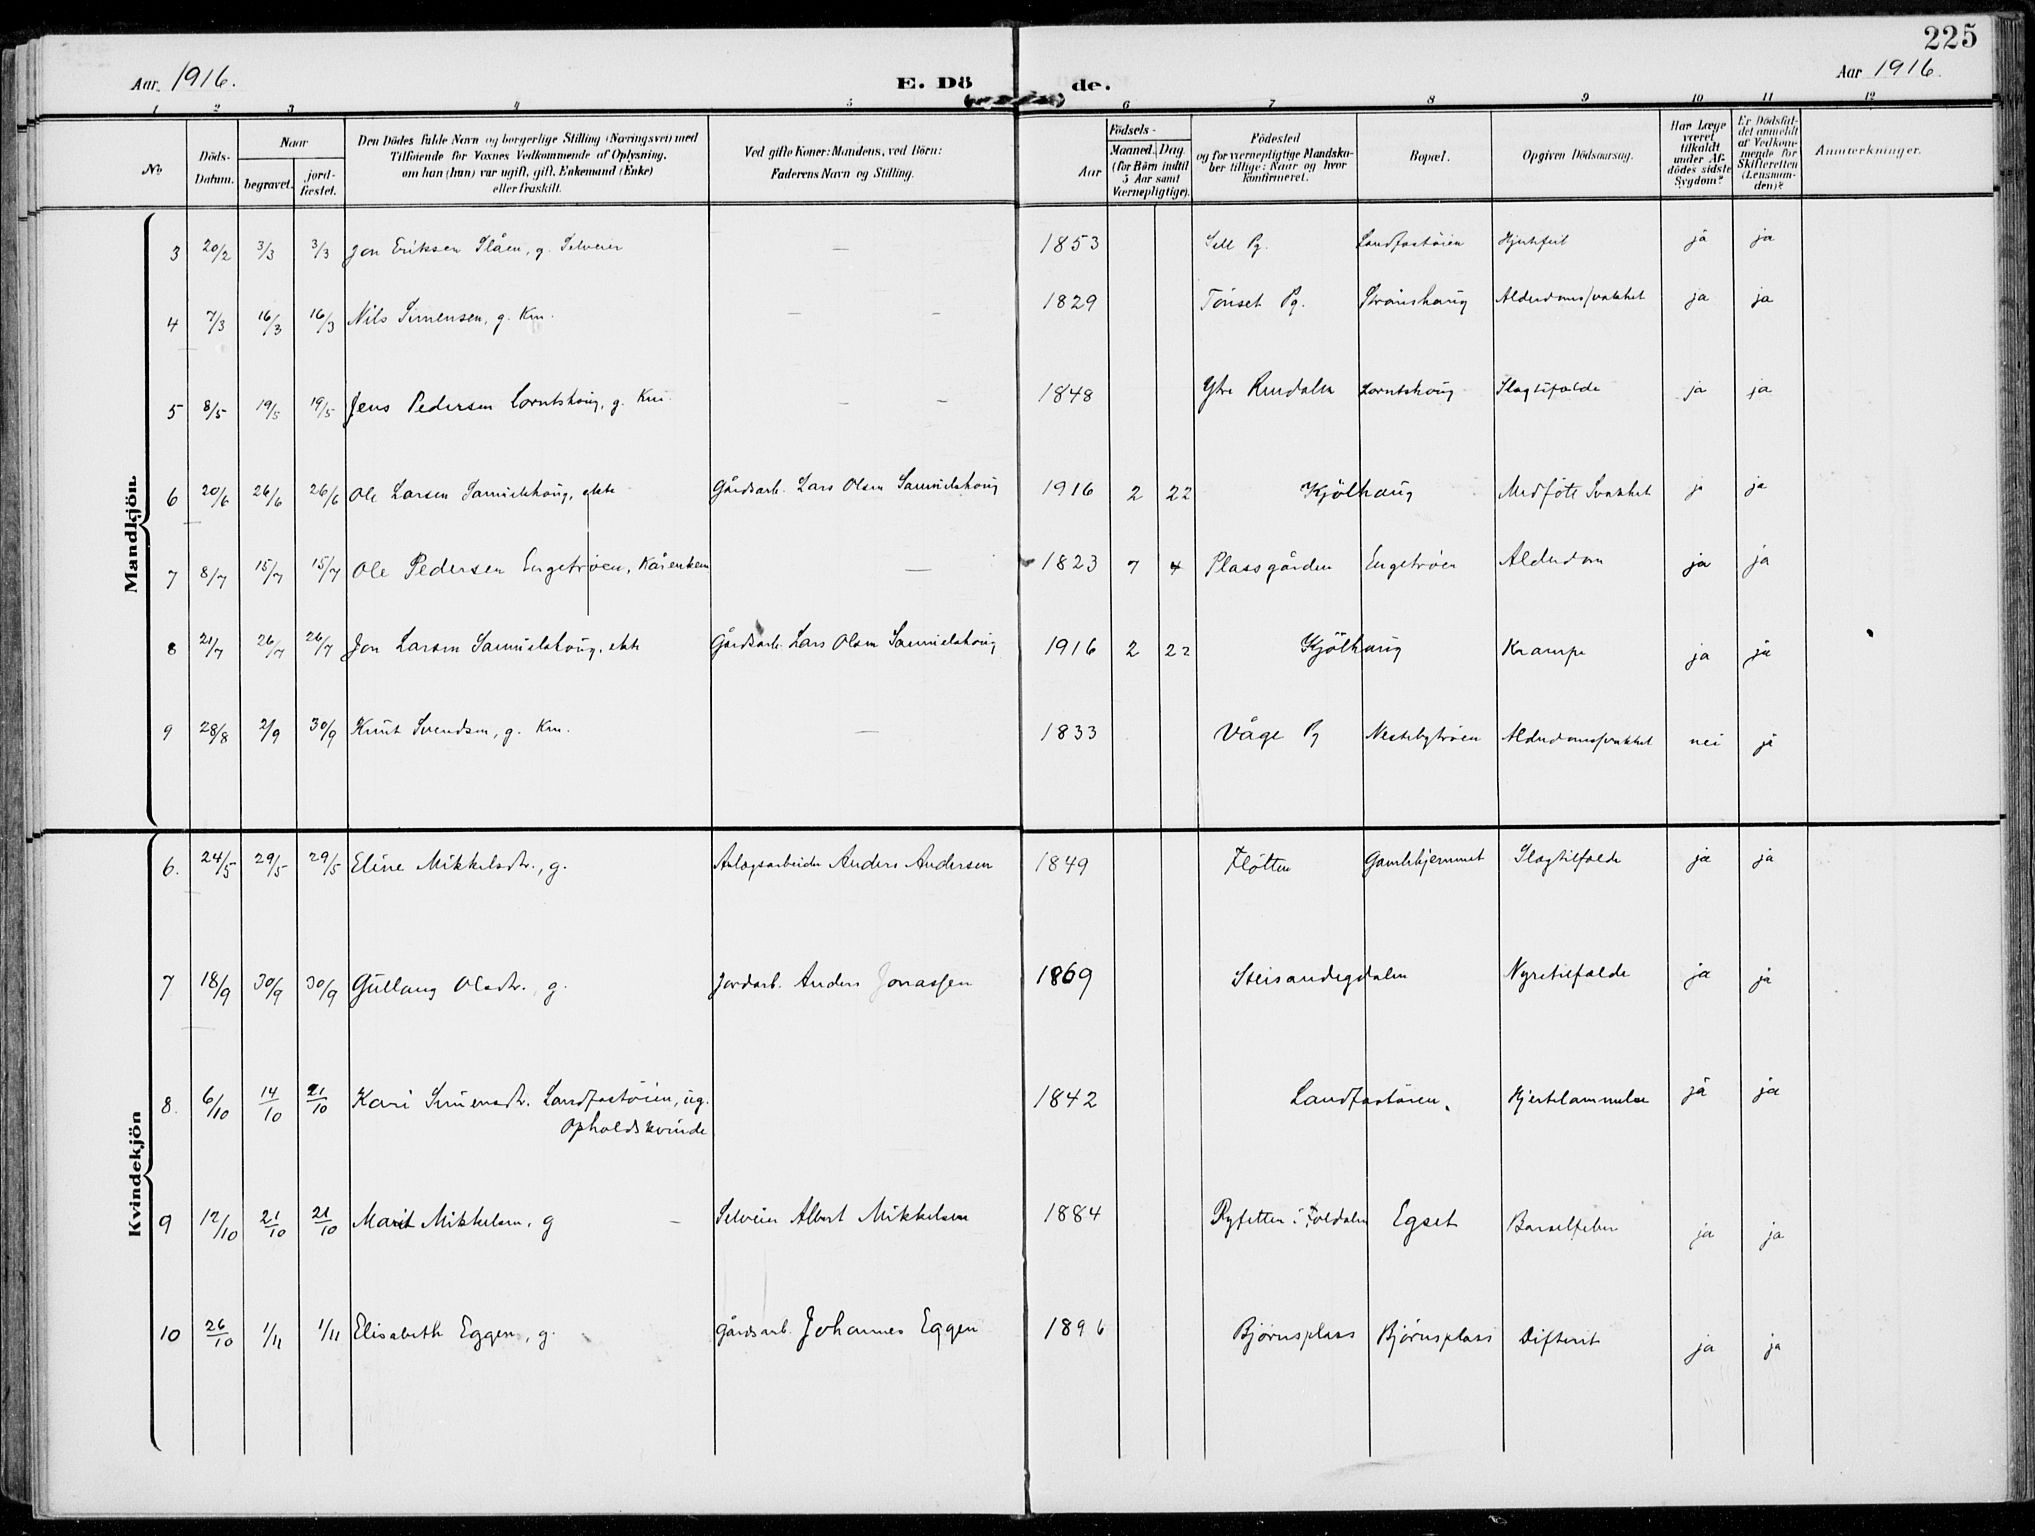 225
Aar 1916. E. Dö de. Aar 1916.
1 2 3 4 5 6 7 8 9 10 11 12
No. Döds-Datum. Naar begravet. jord-fæstet. Den Dödes fulde Navn og borgerlige Stilling (Næringsvei) med Tilföiende for Voxnes Vedkommende af Oplysning, om han (hun) var ugift, gift, Enkemand (Enke) eller fraskilt. Ved gifte Koner: Mandens, ved Börn: Faderens Navn og Stilling. Födsels- Aar Maaned. Dag. (for Börn indtil 5 Aar samt Værnepligtige). Födested og for værnepligtige Mandskaber tillige: Naar og hvor konfirmeret. Bopæl. Opgiven Dödsaarsag. Har Læge været tilkaldt under Afdödes sidste Sygdom? Er Dödsfaldet anmeldt af Vedkommende for Skifteretten (Lensmanden)? Anmerkninger.
Mandkjön.
3 20/2 3/3 3/3 Jon Eriksen Slåen, g. Selveier — 1853 Sell Pg. Landfastöien Hjertefeil ja ja
4 7/3 16/3 16/3 Nils Simensen, g. Km. — – 1829 Tönset Pg. Strömshaug Alderdomssvakhet ja ja
5 8/5 19/5 19/5 Jens Pedersen Lorntshoug, g. Km. – – 1848 Ytre Rendalen Lorntshoug Slagtilfælde ja ja
6 20/6 26/6 26/6 Ole Larsen Samuelshoug, ekte Gårdsarb. Lars Olsen Samuelshoug 1916 2 22 Kjölhaug Medföte Svakhet ja ja
7 8/7 15/7 15/7 Ole Pedersen Engetröen, Kårenkem — 1823 7 4 Plassgården Engetröen Alderdom ja ja
8 21/7 26/7 26/7 Jon Larsen Samuelshoug, ekte Gårdsarb. Lars Olsen Samuelshoug 1916 2 22 Kjölhaug Krampe ja ja
9 28/8 2/9 30/9 Knut Svendsen, g. Km. — 1833 Våge Pg Nestebytröen Alderdomssvakhet nei ja
Kvindekjön
6. 24/5 29/5 29/5 Eline Mikkelsdtr., g. Anlægsarbeider Anders Andersen 1849 Flötten Gamlehjemmet Slagtilfælde ja ja
7 18/9 30/9 30/9 Gullaug Olsdtr., g. Jordarb. Anders Jonassen 1869 Steisandegdalen Nyretilfælde ja ja
8. 6/10 14/10 21/10 Kari Simensdtr. Landfastöien, ug. 1842 Landfastöien. Hjertelammelse ja ja
Opholdskvinde
9 12/10 21/10 21/10 Marit Mikkelsen, g – Selveier Albert Mikkelsen 1884 Ryfetten i Foldalen Egset Barselfeber ja ja
10 26/10 1/11 1/11 Elisabeth Eggen, g. Gårdsarb. Johannes Eggen 1896 Björnsplass Björnsplass Difterit ja ja